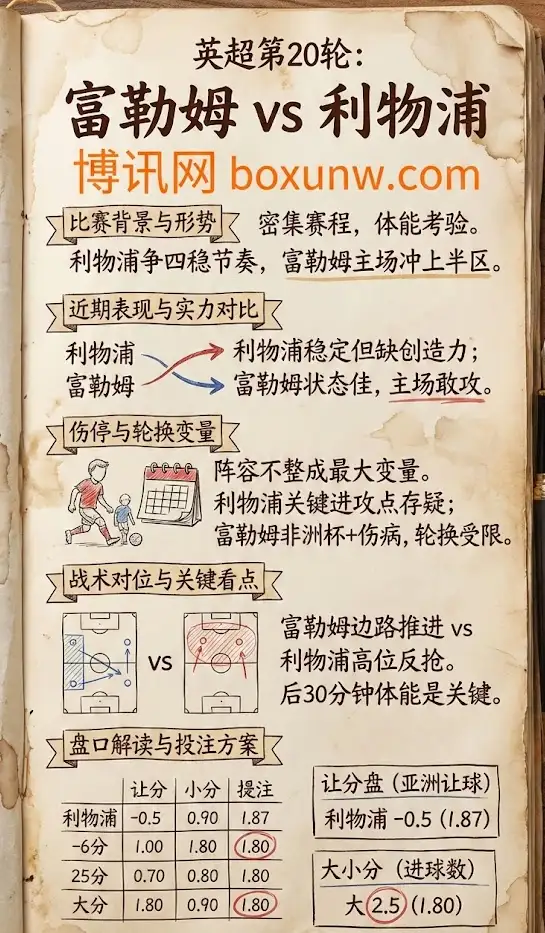 英超第20轮：
富勒姆 vs 利物浦
博讯网 boxunw.com
比赛背景与形势
密集赛程，体能考验。
利物浦争四稳节奏，富勒姆主场冲上半区。
近期表现与实力对比
利物浦
利物浦稳定但缺创造力；
富勒姆
富勒姆状态佳，主场敢攻。
伤停与轮换变量
阵容不整成最大变量。
利物浦关键进攻点存疑；
富勒姆非洲杯+伤病，轮换受限。
战术对位与关键看点
vs
富勒姆边路推进 vs
利物浦高位反抢。
后30分钟体能是关键。
盘口解读与投注方案
让分 小分 提注
利物浦 -0.5 0.90 1.87
-6分 1.00 1.80 1.80
25分 0.70 0.80 1.80
大分 1.80 0.90 1.80
让分盘（亚洲让球）
利物浦 -0.5 (1.87)
大小分（进球数）
大 2.5 (1.80)